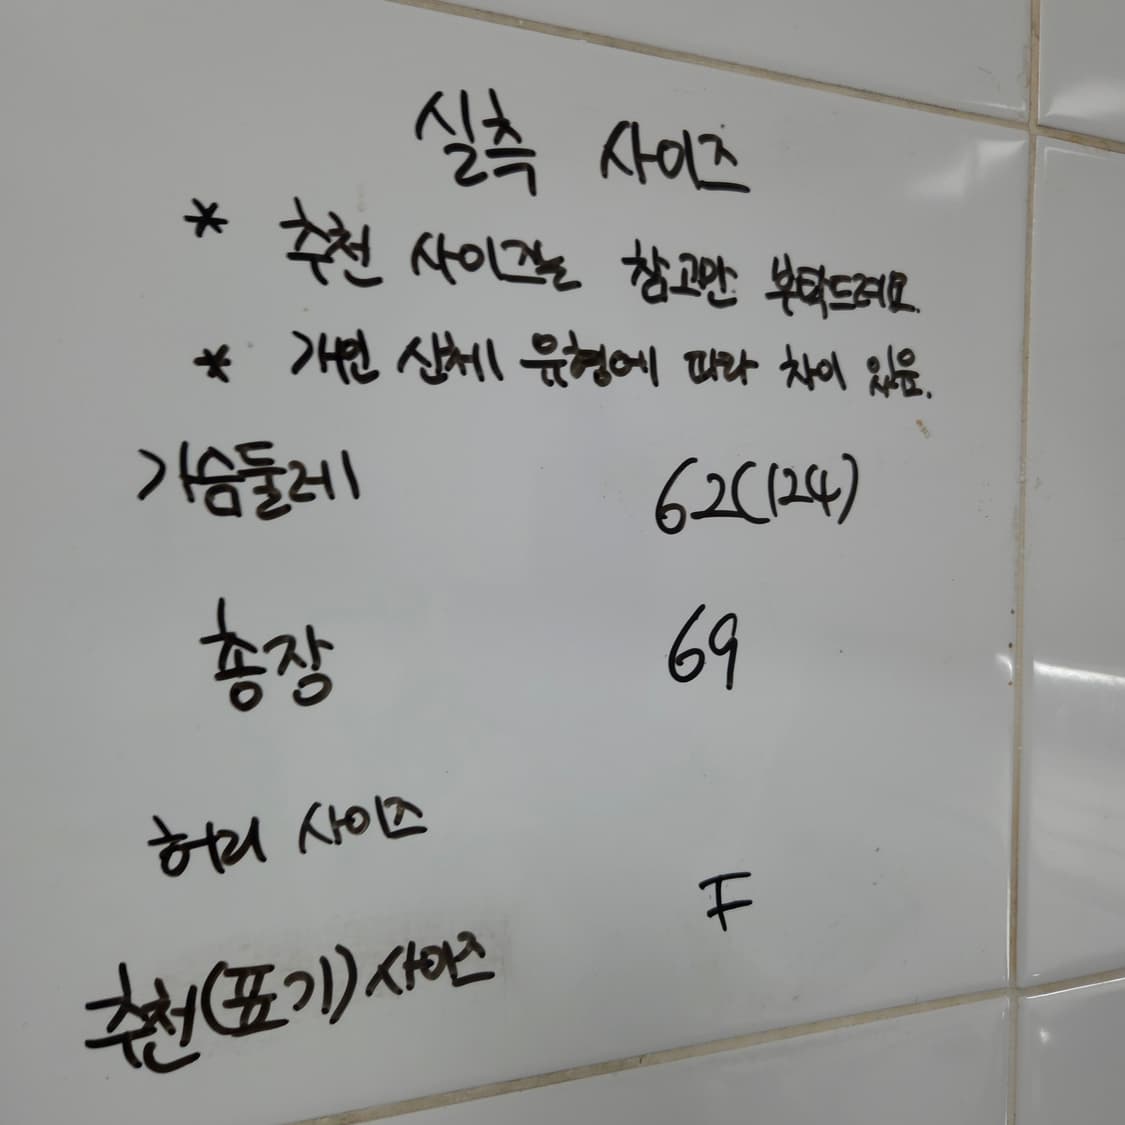 실측 사이즈
* 추천 사이즈는 참고만 부탁드려요.
* 개인 신체 유형에 따라 차이 있음.
가슴둘레 62(124)
총장 69
허리 사이즈
F
추천(표기)사이즈